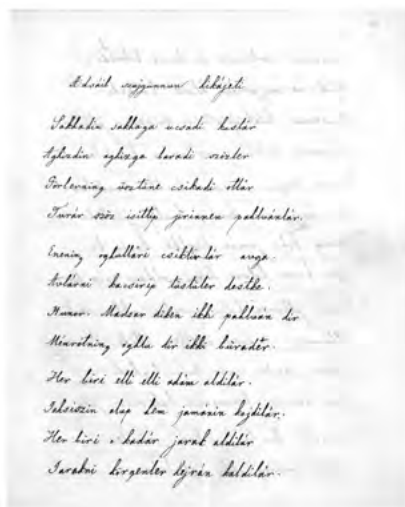 Adsáib szajgünnun hikájeti
Sakhadin sakhaga ucsadi kustár
Aghzdin aghizga baradi szözler
Görlerning üsztüne csikadi ottár
Turár szöz isittip jürianen pahlvánlár.
Enening oghullári csiktilar avga.
Avlárni kacsirip tüstüler destke.
Hunor. Madsar diken ikki pahlván dir
Menrótning oghlu dir ikki bürader.
Her biri elli elli adám aldilár.
Jaksiszin alap hem jamánin kojdilár.
Her biri kadár jarak aldilár
Jarakni körgenler hejrán kaldilár.